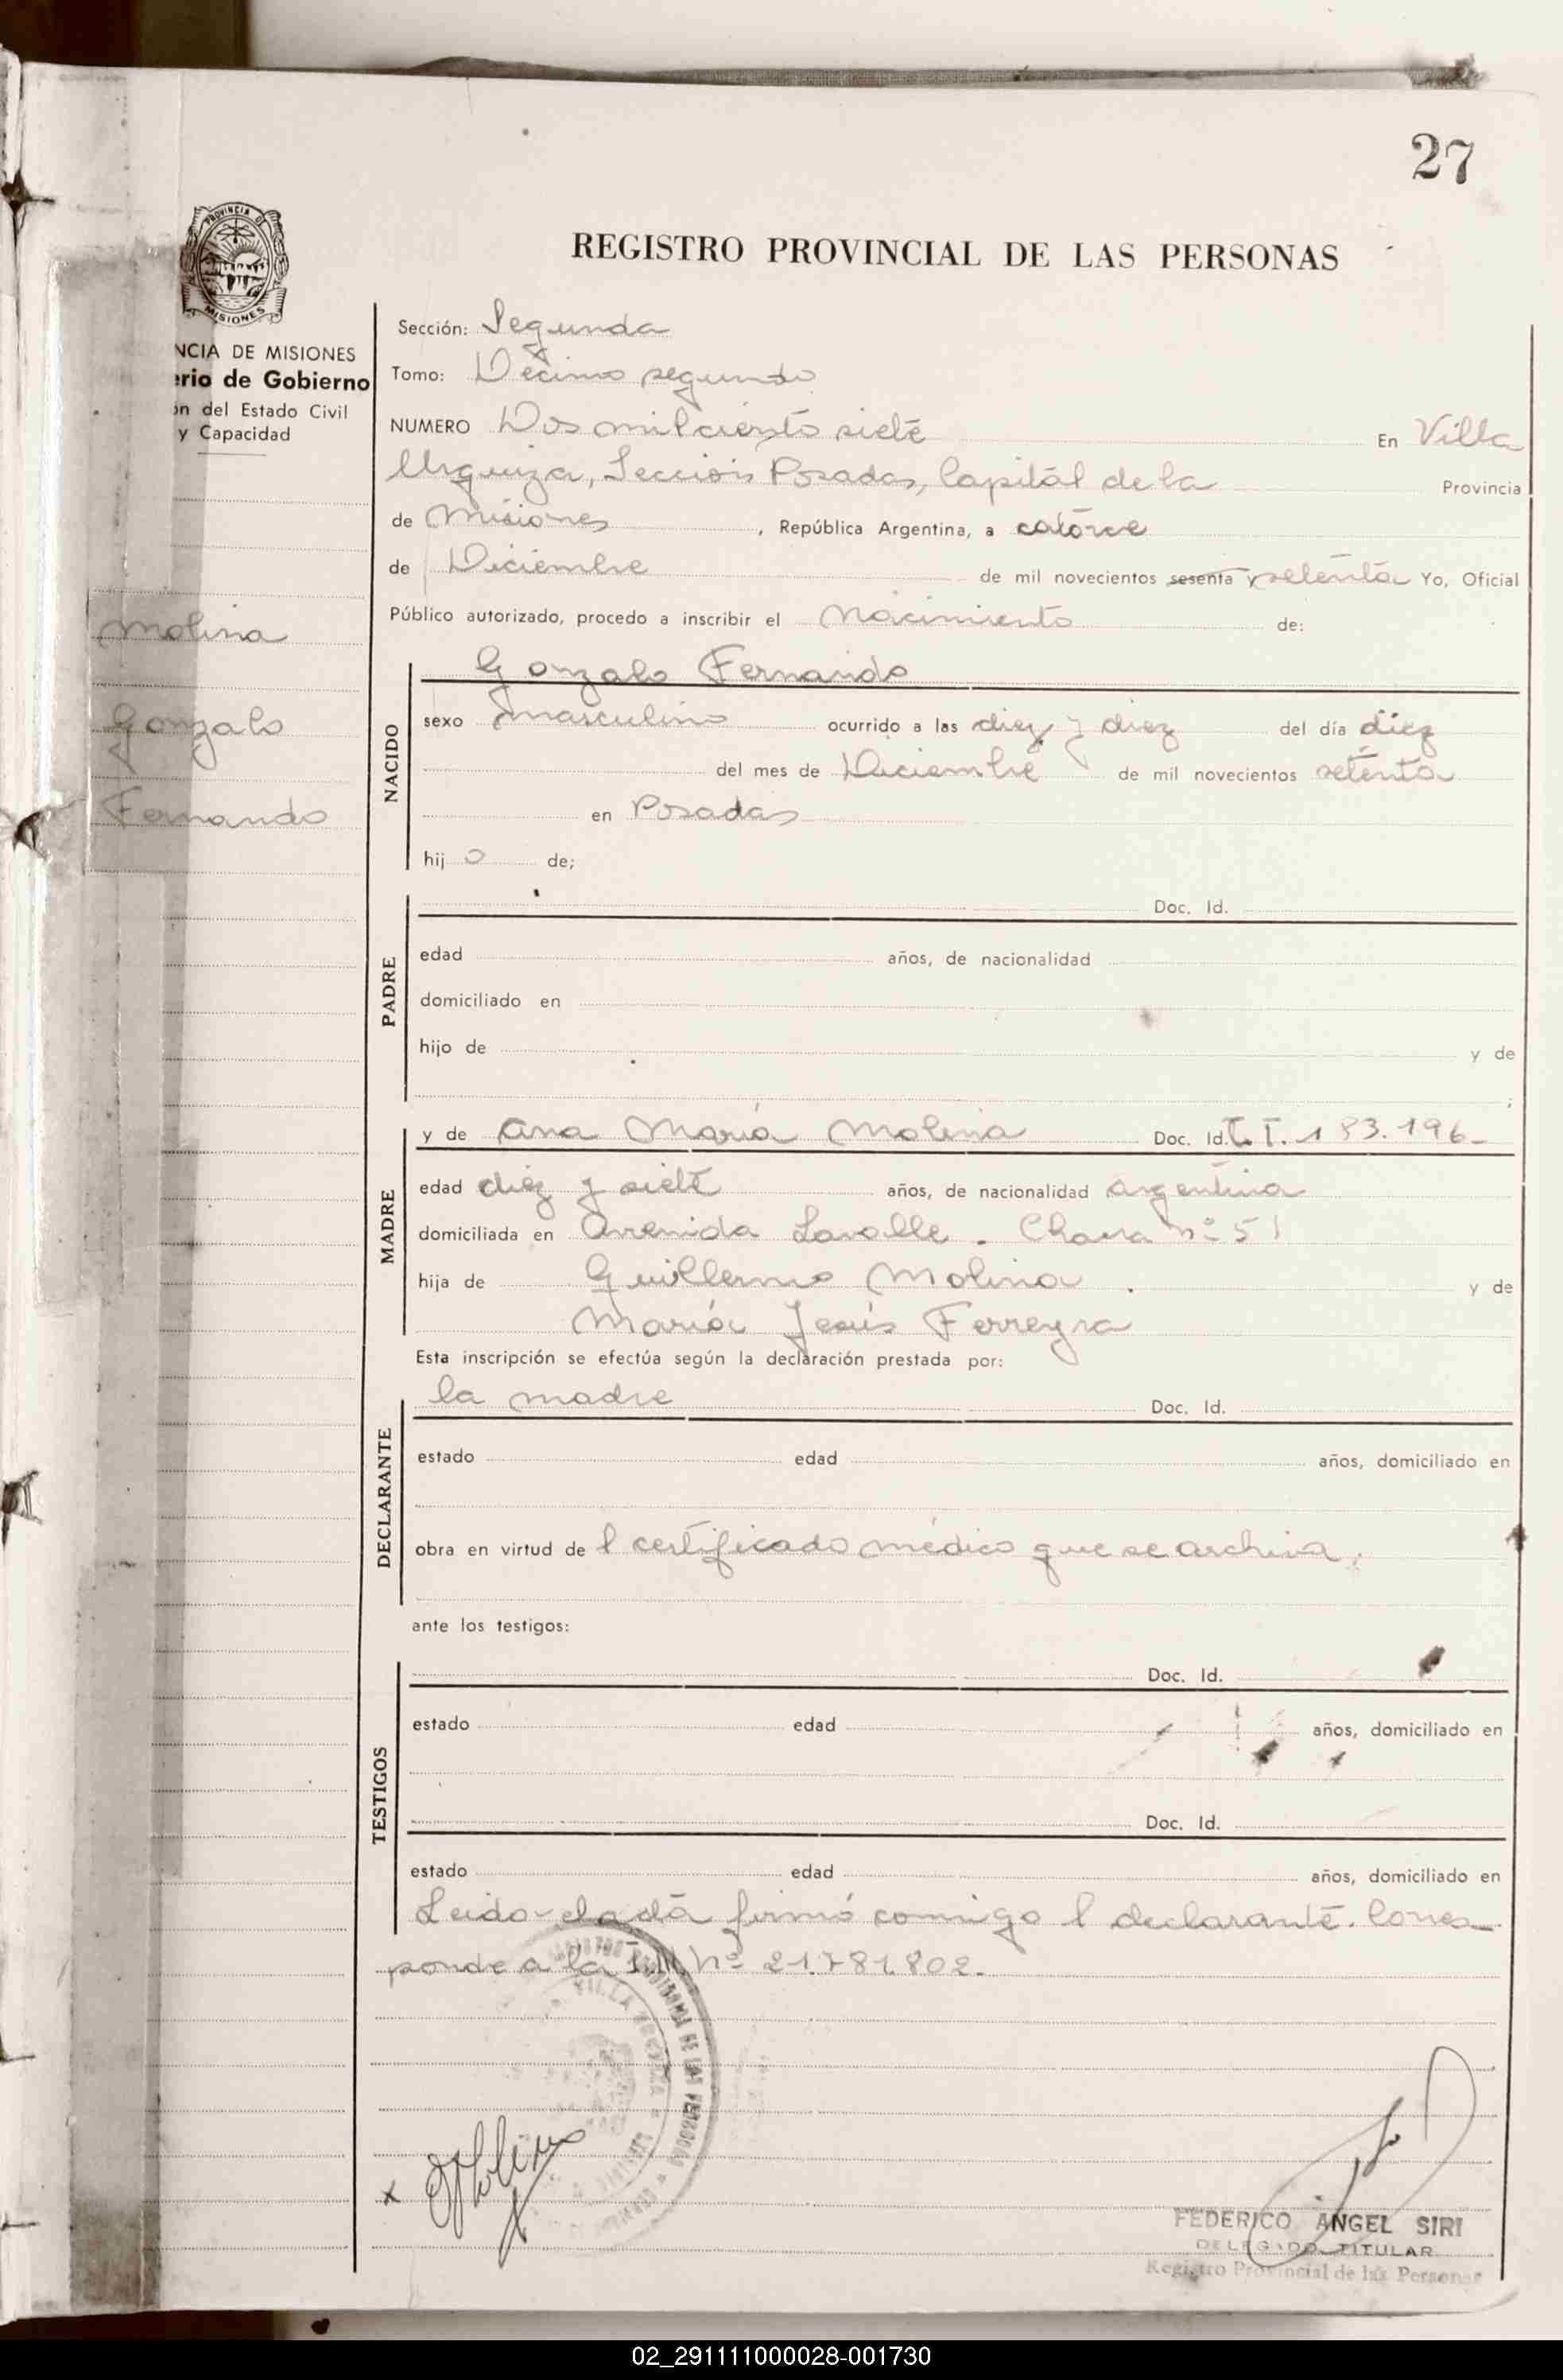 27
REGISTRO PROVINCIAL DE LAS PERSONAS
PROVINCIA D
MISIONES
NCIA DE MISIONES
erio de Gobierno
ón del Estado Civil
y Capacidad
Molina
Gonzalo
Fernando
Sección: Segunda
Tomo: Décimo segundo
NUMERO Dos mil ciento siete En Villa
Urquiza, Sección Posadas, Capital de la Provincia
de Misiones, República Argentina, a catorce
de Diciembre de mil novecientos sesenta setenta Yo, Oficial
Público autorizado, procedo a inscribir el Nacimiento de:
NACIDO
Gonzalo Fernando
sexo masculino ocurrido a las diez y diez del día diez
del mes de Diciembre de mil novecientos setenta
en Posadas
hij o de;
PADRE
Doc. Id.
edad años, de nacionalidad
domiciliado en
hijo de y de
;
MADRE
y de Ana María Molina Doc. Id. C.I. 183.196-
edad diez y siete años, de nacionalidad argentina
domiciliada en Avenida Lavalle. Chacra nº 51
hija de Guillermo Molina y de
María Jesús Ferreyra
Esta inscripción se efectúa según la declaración prestada por:
DECLARANTE
la madre Doc. Id.
estado edad años, domiciliado en
obra en virtud de l certificado médico que se archiva.
ante los testigos:
TESTIGOS
Doc. Id.
estado edad años, domiciliado en
Doc. Id.
estado edad años, domiciliado en
Leido el acta firmó conmigo l declarante. Corres-
ponde a la nº 21.781.802.
x Molina
FEDERICO ANGEL SIRI
DELEGADO TITULAR
Registro Provincial de las Personas
02_291111000028-001730